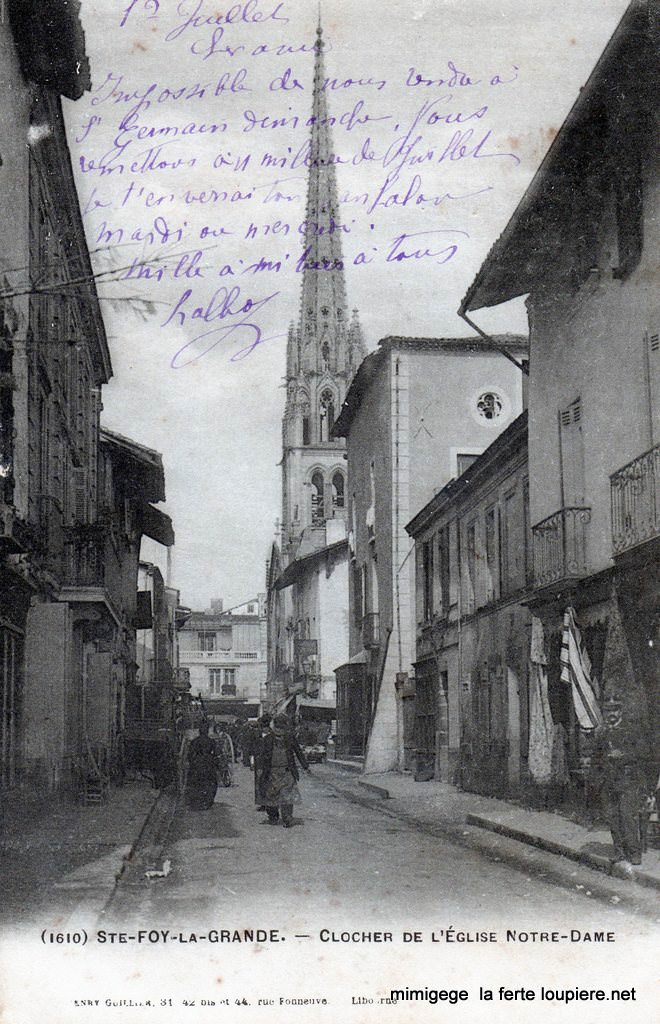 1º Juillet
Impossible de nous rendre à
St Germain dimanche. Nous
remettons à
Juillet
je t'enverrai ton pantalon
mardi ou mercredi.
Mille à mille à tous
(1610) STE-FOY-LA-GRANDE. — CLOCHER DE L'ÉGLISE NOTRE-DAME
ENRY GUILLIER, 31 42 bis et 44, rue Fonneuve Libourne
mimigege la ferte loupiere.net